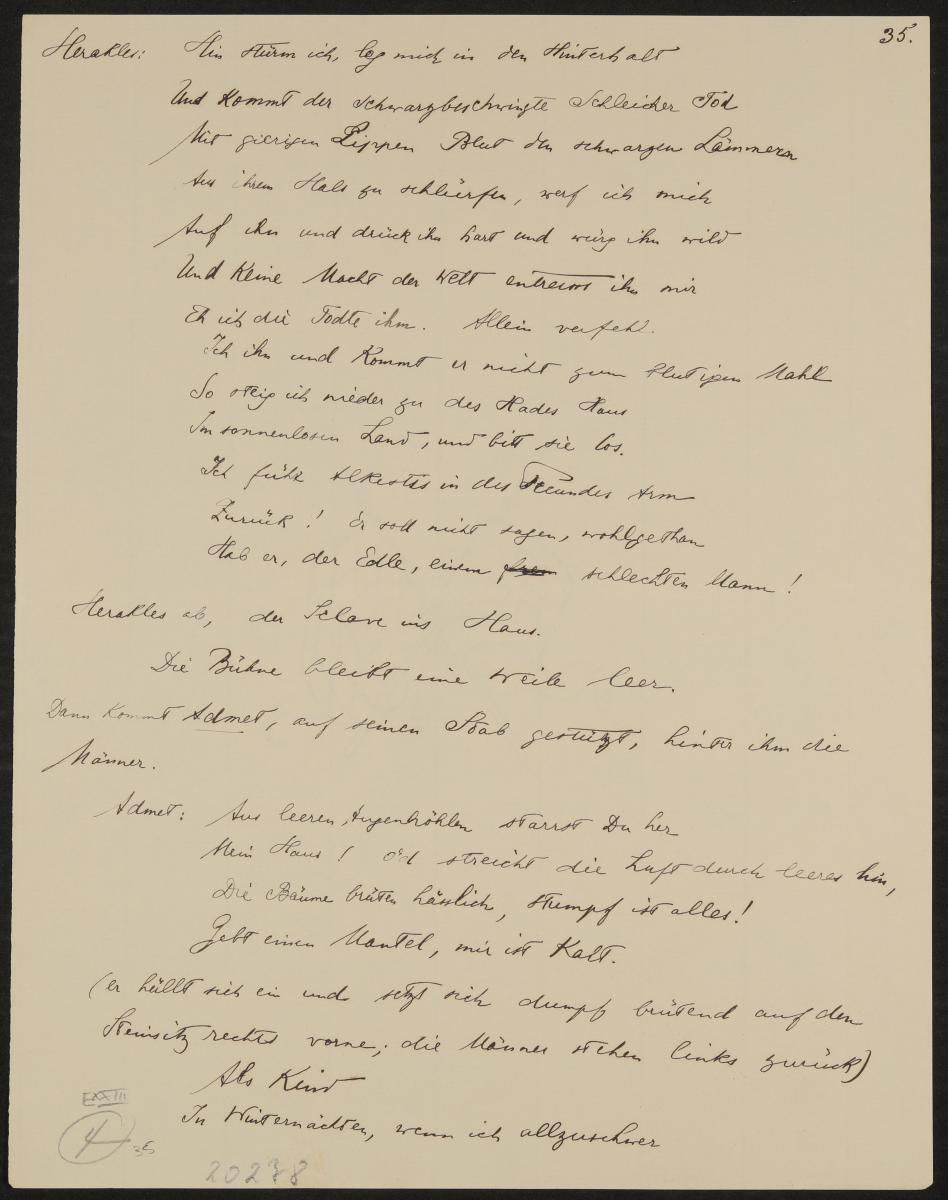 35.
Herakles: Hin stürm ich, leg mich in den Hinterhalt
Und Kommt der schwarzbeschwingte Schleicher Tod
Mit gierigen Lippen Blut den schwarzen Lämmern
Aus ihrem Hals zu schlürfen, werf ich mich
Auf ihn und drück ihn hart und würg ihn wild
Und Keine Macht der Welt entreisst ihn mir
Eh ich die Todte ihm. Allein verfehl.
Ich ihn und Kommt er nicht zum blutigen Mahl
So steig ich nieder zu des Hades Haus
Im sonnenlosen Land, und bitt sie los.
Ich führ Alkestis in des Freundes Arm
Zurück! Er soll nicht sagen, wohlgethan
Hab er, der Edle, einem schlechten Mann!
Herakles ab, der Sclave ins Haus.
Die Bühne bleibt eine Weile leer.
Dann Kommt Admet, auf seinen Stab gestützt, hinter ihm die
Männer.
Admet: Aus leeren Augenhöhlen starrst Du her
Mein Haus! öd streicht die Luft durch leeres hin,
Die Bäume brüten hässlich, stumpf ist alles!
Gebt einen Mantel, mir ist Kalt.
(er hüllt sich ein und setzt sich dumpf brütend auf den
Steinsitz rechts vorne; die Männer stehen links zurück)
Als Kind
In Winternächten, wenn ich allzuschwer
EXXIII
4
35
20238